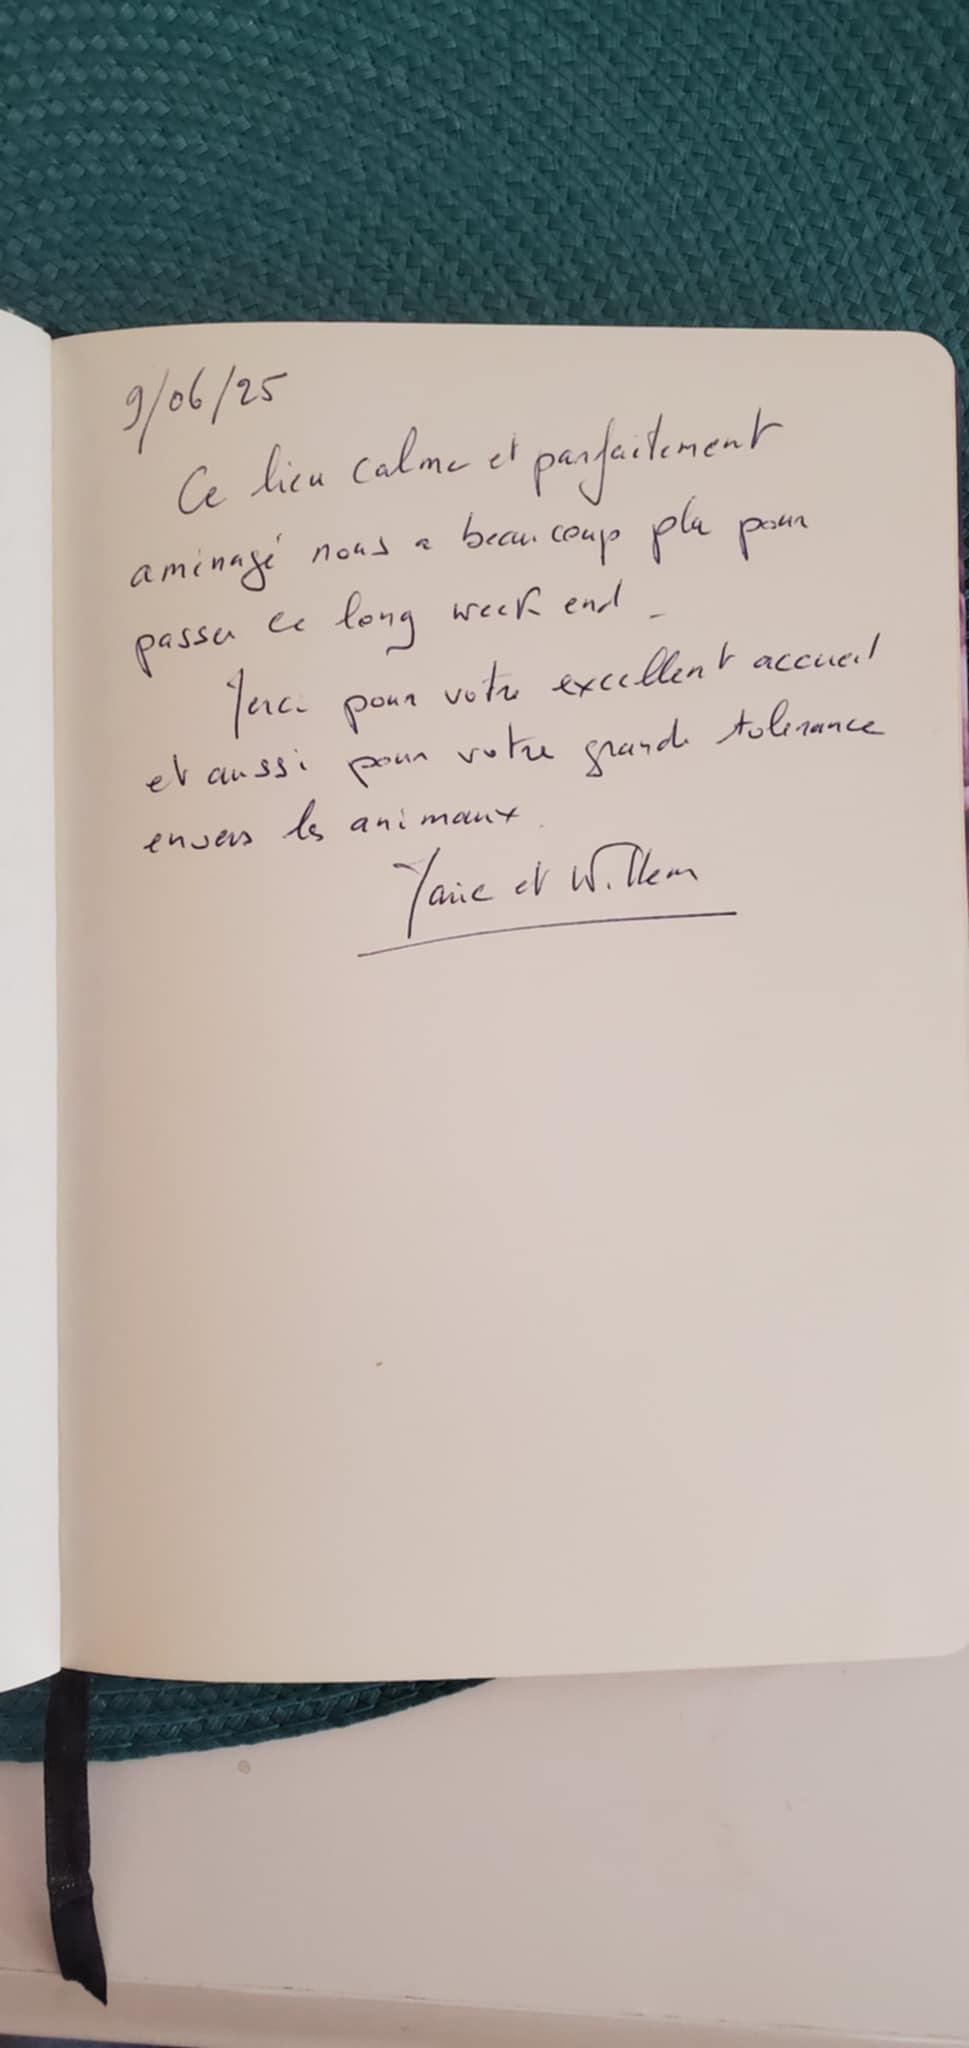 9/06/25
Ce lieu calme et parfaitement
aménagé nous a beaucoup plu pour
passer ce long week end _
Merci pour votre excellent accueil
et aussi pour votre grande tolérance
envers les animaux.
et Willem